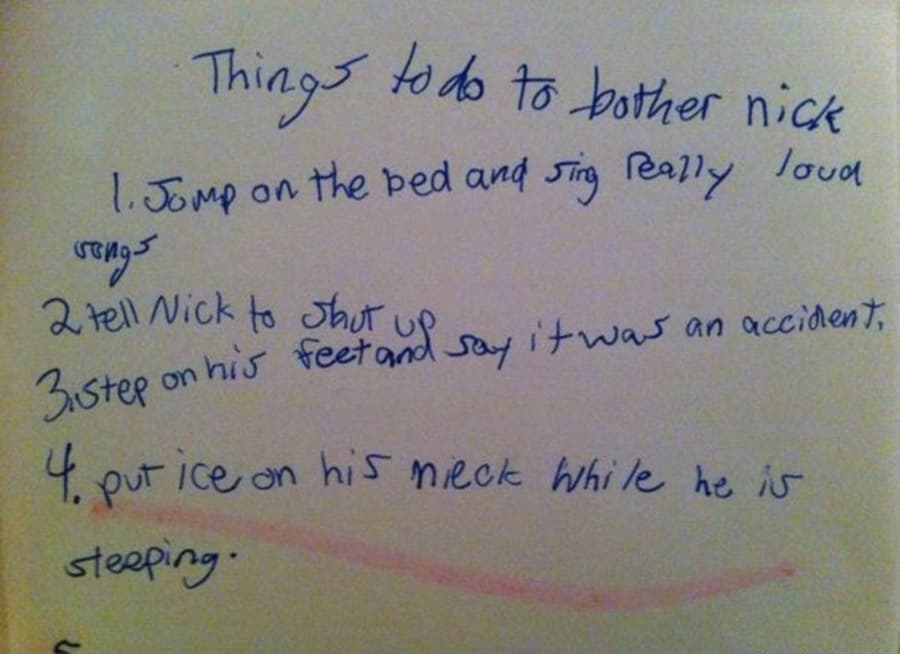 Things to do to bother nick
1. Jump on the bed and sing really loud
songs
2 tell Nick to shut up
3. step on his feet and say it was an accident.
4. put ice on his nieck while he is
sleeping.
5